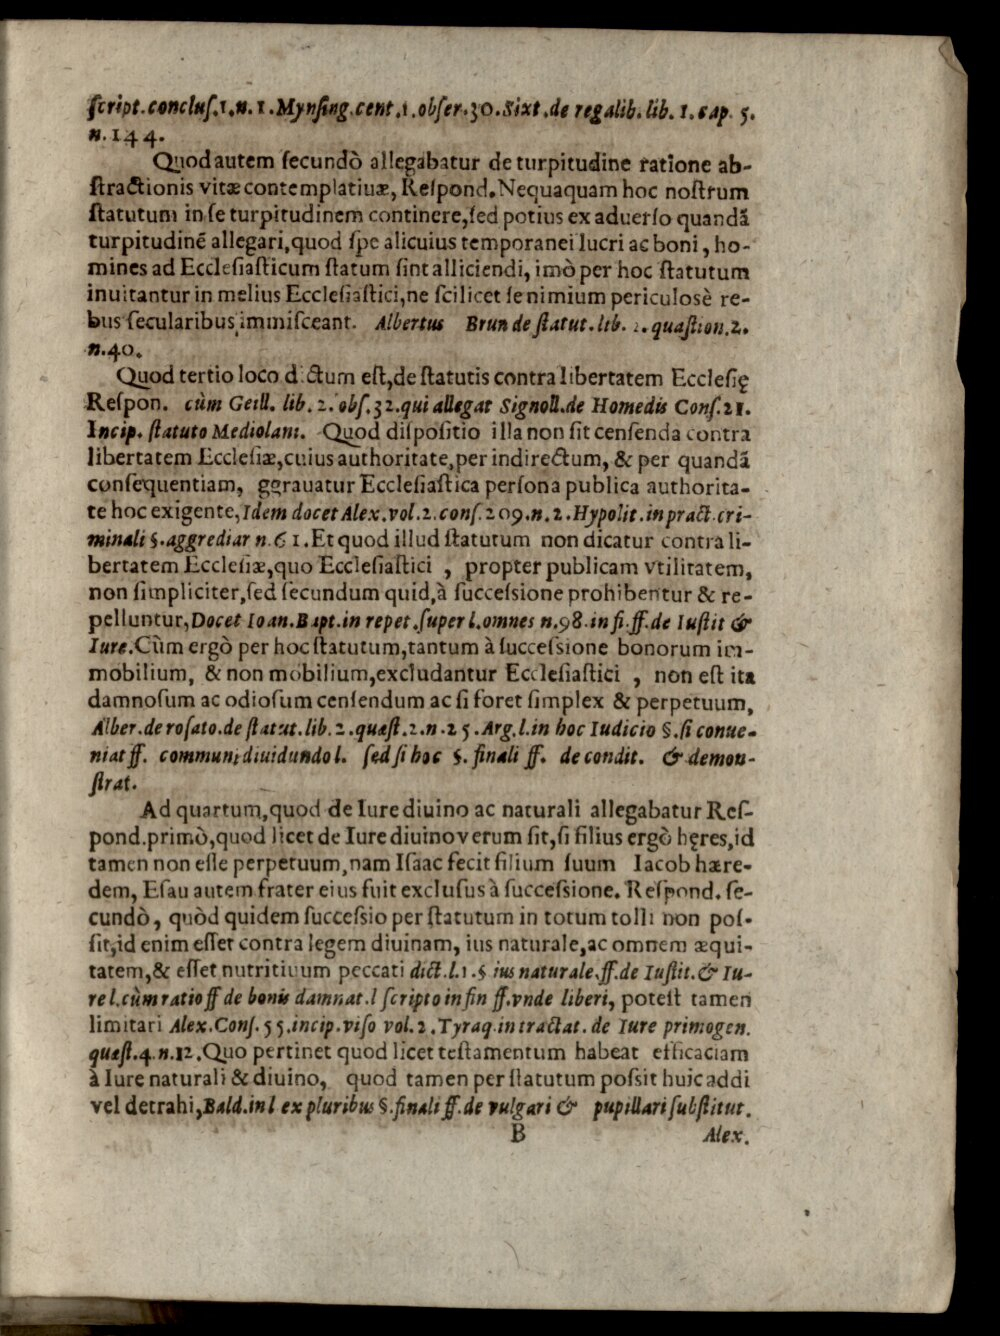 ſcript.concluſ.1.n.1.Mynſing.cent.1.obſer.30.Sixt.de regalib.lib.1.cap.5.
n.144.
Quod autem ſecundò allegabatur de turpitudine ratione ab-
ſtractionis vitæ contemplatiuæ, Reſpond. Nequaquam hoc noſtrum
ſtatutum in ſe turpitudinem continere, ſed potius ex aduerſo quandã
turpitudinẽ allegari, quod ſpe alicuius temporanei lucri ac boni, ho-
mines ad Eccleſiaſticum ſtatum ſint alliciendi, imò per hoc ſtatutum
inuitantur in melius Eccleſiaſtici, ne ſcilicet ſe nimium periculosè re-
bus ſecularibus immiſceant. Albertus Brun de ſtatut. lib. 2. quæſtion. 2.
n.40.
Quod tertio loco dictum eſt, de ſtatutis contra libertatem Eccleſię
Reſpon. cùm Geill. lib. 2. obſ. 32. qui allegat Signoll. de Homedis Conſ. 21.
Incip. ſtatuto Mediolani. Quod diſpoſitio illa non ſit cenſenda contra
libertatem Eccleſiæ, cuius authoritate, per indirectum, & per quandã
conſequentiam, ggrauatur Eccleſiaſtica perſona publica authorita-
te hoc exigente, Idem docet Alex. vol. 2. conſ. 209. n. 2. Hypolit. in pract. cri-
minali §. aggrediar n. 61. Et quod illud ſtatutum non dicatur contra li-
bertatem Eccleſiæ, quo Eccleſiaſtici , propter publicam vtilitatem,
non ſimpliciter, ſed ſecundum quid, à ſucceſsione prohibentur & re-
pelluntur, Docet Ioan. Bapt. in repet. ſuper l. omnes n. 98. in fi. ff. de Iuſtit &
Iure. Cùm ergò per hoc ſtatutum, tantum à ſucceſsione bonorum im-
mobilium, & non mobilium, excludantur Eccleſiaſtici , non eſt ita
damnoſum ac odioſum cenſendum ac ſi foret ſimplex & perpetuum,
Alber. de roſato. de ſtatut. lib. 2. quæſt. 2. n. 25. Arg. l. in hoc Iudicio §. ſi conue-
niat ff. communi diuidundo l. ſed ſi hoc §. finali ff. de condit. & demon-
ſtrat.
Ad quartum, quod de Iure diuino ac naturali allegabatur Reſ-
pond. primò, quod licet de Iure diuino verum ſit, ſi filius ergò hęres, id
tamen non eſſe perpetuum, nam Iſaac fecit filium ſuum Iacob hære-
dem, Eſau autem frater eius fuit excluſus à ſucceſsione. Reſpond. ſe-
cundò, quòd quidem ſucceſsio per ſtatutum in totum tolli non poſ-
ſit, id enim eſſet contra legem diuinam, ius naturale, ac omnem æqui-
tatem, & eſſet nutritiuum peccati dict. l. 1. § ius naturale. ff. de Iuſtit. & Iu-
re l. cùm ratio ff de bonis damnat. l ſcripto in fin ff. vnde liberi, poteſt tamen
limitari Alex. Conſ. 55. incip. viſo vol. 2. Tyraq. in tractat. de Iure primogen.
quæſt. 4. n. 12. Quo pertinet quod licet teſtamentum habeat efficaciam
à Iure naturali & diuino, quod tamen per ſtatutum poſsit huic addi
vel detrahi, Bald. in l ex pluribus §. finali ff. de vulgari & pupillari ſubſtitut.
B Alex.